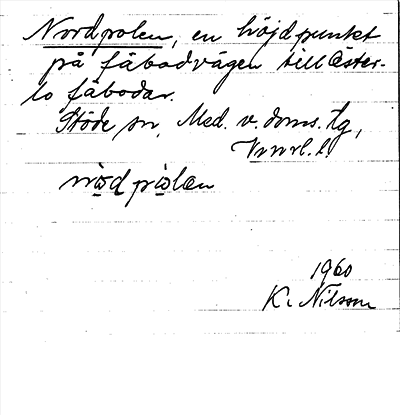 Nordpolen, en höjdpunkt
på fäbodvägen till Öster-
lo fäbodar.
Stöde sn, Med. v. doms. tg,
Vnrl. l.
nòd pòlen
1960
K. Nilsson